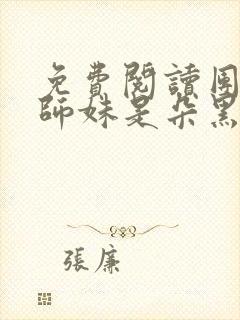 免費閱讀團
師妹是朵黑
張廉